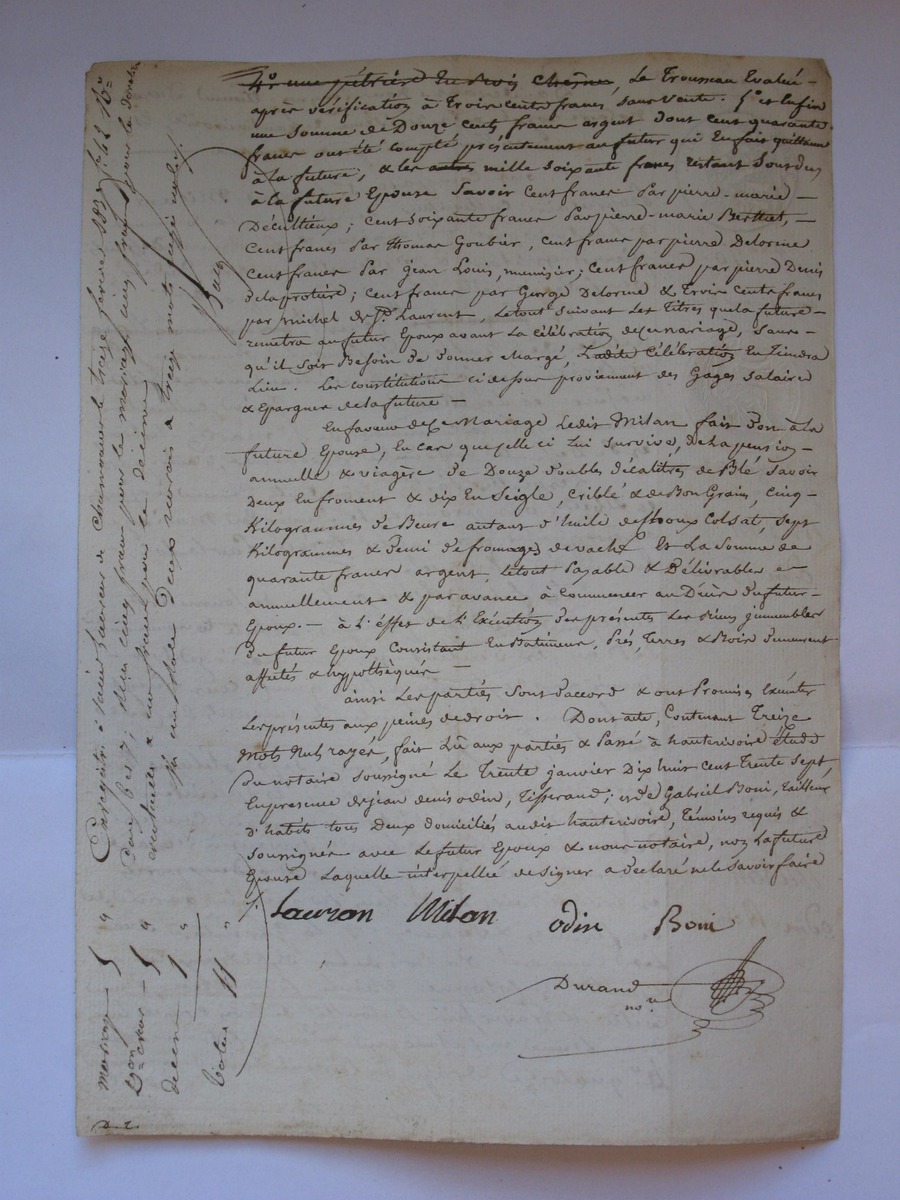 4º une pétrière En bois Chesne, Le Trousseau Evalué -
après vérification à Trois cents francs sans vente. 5º et Enfin
une Somme de Douze Cents francs argent dont cent quarante
francs ont été Compté présentement au futur qui En fait quittance
à la future, & les autres mille soixante francs restant Sont dus
à la future Epouse Savoir Cent francs Par pierre-marie
Décultieux; Cent soixante francs Par pierre-marie Berthet, -
Cent francs Par Thomas Goubier, Cent francs par pierre Delorme
Cent francs Par jean Louis, menuisier; Cent francs par pierre Denis
dela protière; Cent francs par George Delorme & Trois Cents francs
par michel de St. Laurent, Le tout suivant Les Titres que la future -
remettra au futur Epoux avant La Célébration de Ce mariage, Sans
qu'il soit Besoin de donner chargé, Ladite Célébration En Tiendra
Lieu. Les constitutions ci dessus proviennent des Gages Salaire
& Epargnes de la future -
En faveur de Ce Mariage Ledit Milan fait Don à la
future Epouse, En Cas que celle ci Lui survive, de La pension -
annuelle & viagère de Douze doubles décalitres de Blé Savoir
Deux En froment & dix En Seigle, criblé & de Bon Grain, cinq -
Kilogrammes de Beure autant d'huile de Choux Colsat, Sept
Kilogrammes & demi de fromages de vache Et La Somme de
quarante francs argent, Le tout Payable & Délivrable -
annuellement & par avance à Commencer au Décès du futur -
Epoux. - à L'effet de L'Exécution des présentes Les Biens immeubles
du futur Epoux Consistant En Batimens, Prés, Terres & Bois demeurent
affectés & hypothéqués -
ainsi Les parties Sont d'accord & ont Promis Exécuter
Les présentes aux peines de droit. Dont acte, Contenant Treize
Mots Nuls rayés, fait Lu aux parties & Passé à hauterivoire étude
Du notaire soussigné Le Trente janvier Dix huit Cent Trente Sept,
En présence de jean denis odin, Tisserand; & de Gabriel Boni, Tailleur
d'habits tous Deux domiciliés audit hauterivoire, Témoins requis &
soussignés avec Le futur Epoux & nous notaire, non La future
Epouse Laquelle interpellée de signer a déclaré ne le savoir faire
Milan odin Boni
Durand
nore
Enregistré à Saint Laurent de Chamousset le treize février 1837 fº
cinq francs pour le mariage, cinq francs pour la donation
& un franc pour le décime
Deux renvois & treize mots rayés nuls.
mariage 5 "
Don 5 "
décime 1 "
Total 11 "